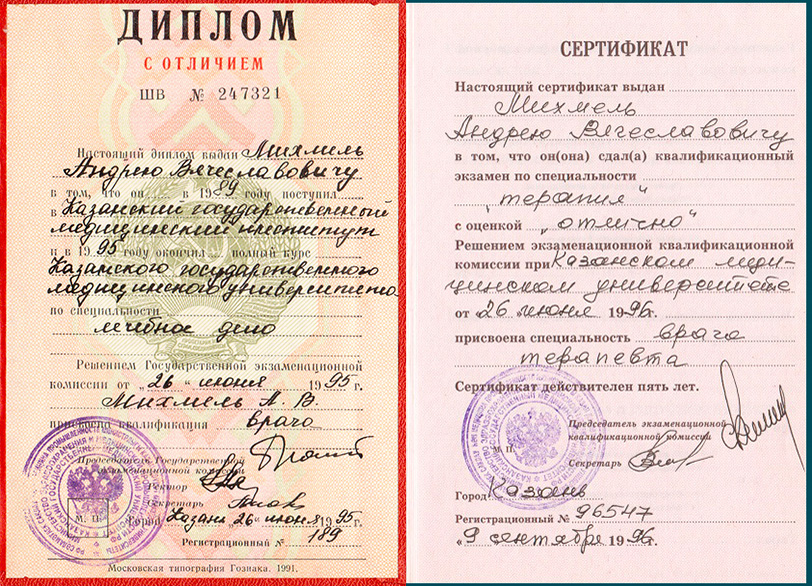 ДИПЛОМ
С ОТЛИЧИЕМ
ШВ № 247321
Настоящий диплом выдан Михмель
Андрею Вячеславовичу
в том, что он в 1989 году поступил
в Казанский государственный
медицинский институт
и в 1995 году окончил полный курс
Казанского государственного
медицинского университета
по специальности
лечебное дело
Решением Государственной экзаменационной
комиссии от "26" июня 1995 г.
Михмель А. В.
присвоена квалификация врача
Председатель Государственной
экзаменационной комиссии
Ректор
Секретарь
М. П.
Город Казань "26" июня 1995 г.
Регистрационный № 189
Московская типография Гознака. 1991.
СЕРТИФИКАТ
Настоящий сертификат выдан
Михмель
Андрею Вячеславовичу
в том, что он(она) сдал(а) квалификационный
экзамен по специальности
"терапия"
с оценкой "отлично"
Решением экзаменационной квалификационной
комиссии при Казанском меди-
цинском университете
от "26" июня 1996 г.
присвоена специальность врача
терапевта
Сертификат действителен пять лет.
Председатель экзаменационной
квалификационной комиссии
М. П.
Секретарь
Город Казань
Регистрационный № 96547
"9" сентября 1996 г.